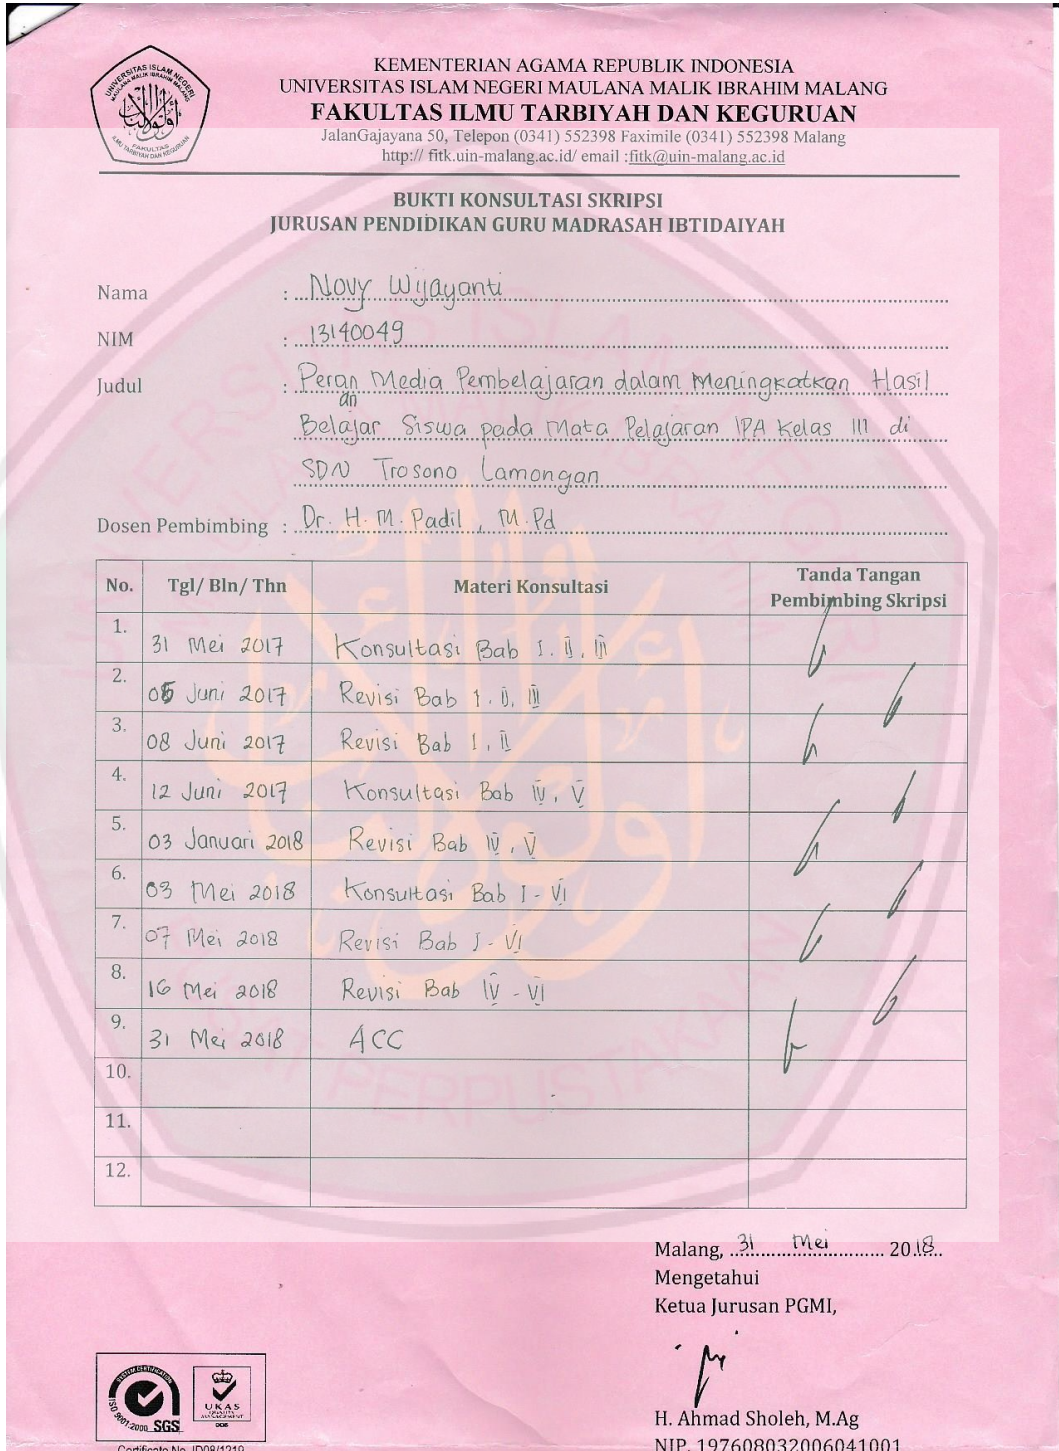 KEMENTERIAN AGAMA REPUBLIK INDONESIA
UNIVERSITAS ISLAM NEGERI MAULANA MALIK IBRAHIM MALANG
FAKULTAS ILMU TARBIYAH DAN KEGURUAN
JalanGajayana 50, Telepon (0341) 552398 Faximile (0341) 552398 Malang
http:// fitk.uin-malang.ac.id/ email :fitk@uin-malang.ac.id
BUKTI KONSULTASI SKRIPSI
JURUSAN PENDIDIKAN GURU MADRASAH IBTIDAIYAH
Nama : Novy Wijayanti
NIM : 13140049
Judul : Peran Media Pembelajaran dalam Meningkatkan Hasil
an
Belajar Siswa pada Mata Pelajaran IPA Kelas III di
SDN Trosono Lamongan
Dosen Pembimbing : Dr. H. M. Padil, M.Pd
No. Tgl/ Bln/ Thn Materi Konsultasi Tanda Tangan Pembimbing Skripsi
1. 31 Mei 2017 Konsultasi Bab I, II, III
2. 05 Juni 2017 Revisi Bab I, II, III
3. 08 Juni 2017 Revisi Bab I, II
4. 12 Juni 2017 Konsultasi Bab IV, V
5. 03 Januari 2018 Revisi Bab IV, V
6. 03 Mei 2018 Konsultasi Bab I - VI
7. 07 Mei 2018 Revisi Bab I - VI
8. 16 Mei 2018 Revisi Bab IV - VI
9. 31 Mei 2018 ACC
10.
11.
12.
Malang, 31 Mei 2018
Mengetahui
Ketua Jurusan PGMI,
H. Ahmad Sholeh, M.Ag
NIP. 197608032006041001
SYSTEM CERTIFICATION
ISO 9001:2000 SGS
UKAS
QUALITY
MANAGEMENT
005
Certificate No. ID08/1219